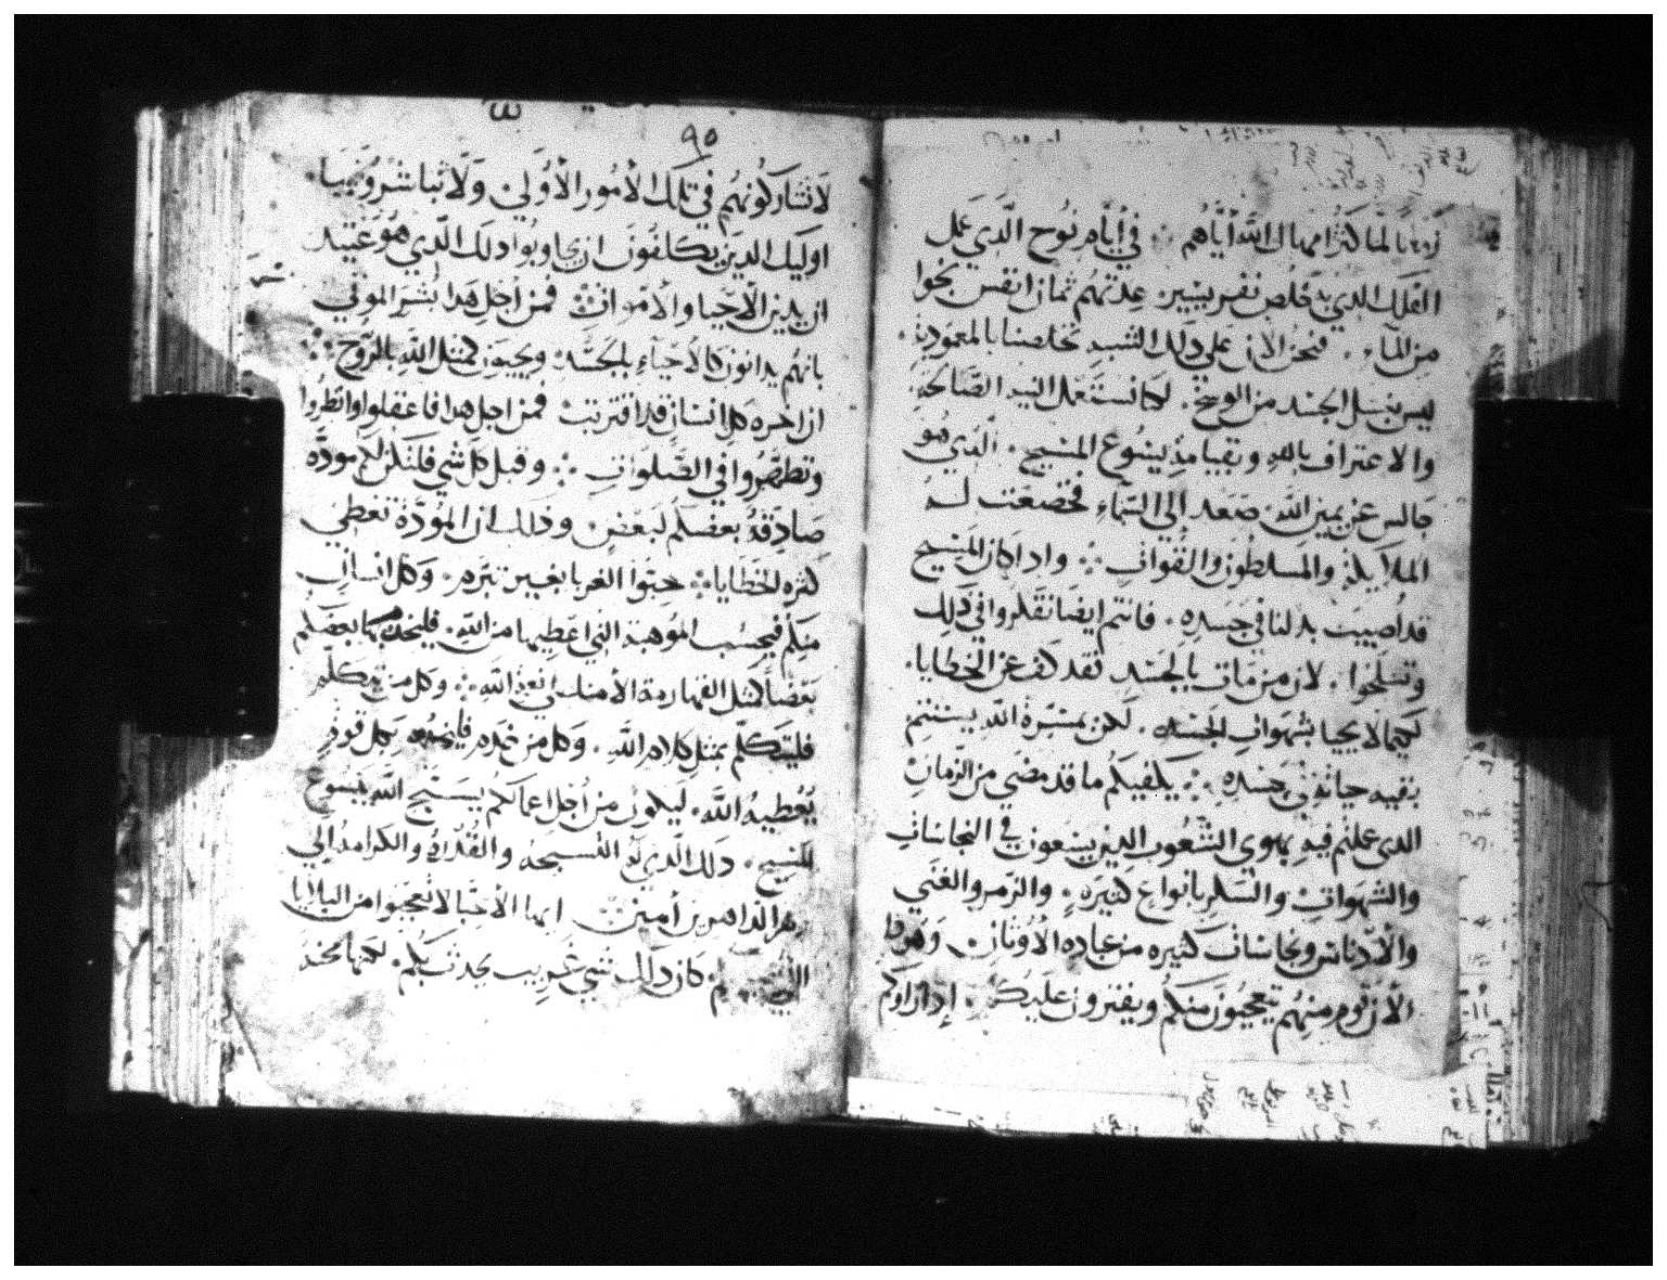 زمانا لما كثر امهال الله اياهم ∴ في أيام نوح الذي عمل
الفلك الذي به خلص نفر يسير عدتهم ثمان انفس نجوا
من المآء. فنحن الان على ذلك الشبه تخلصنا بالمعموديه.
ليس بغسل الجسد من الوسخ. لكما نستعمل النيه الصالحه
والاعتراف بالله وبقيامة يسوع المسيح. الذي هو
جالس عن يمين الله. صعد إلي السماء فخضعت له
الملايكه والمسلطون والقوات ∴ واذا كان المسيح
قد أصيب بدلنا في جسده. فانتم ايضا تفكروا في ذلك
وتسلحوا. لان من مات بالجسد فقد كف عن الخطايا.
لكيما لا يحيا بشهوات الجسد. لكن بمسرة الله يستتم
بقيه حياته في جسده ∴ يكفيكم ما قد مضي من الزمان
الذي عملتم فيه بهوي الشعوب الذين يسعون في النجاسات
والشهوات والسكر بأنواع كثيره. والزمر والغني
والادناس ونجاسات كثيره من عباده الأوثان. وهوذا
الأن قوم منهم يتعجبون منكم ويفترون عليكم. إذا راوكم
٩٥
لا تشاركونهم في تلك الأمور الأولي. ولا تباشروكيا.
اوليك الذين يكلفون ان يجاوبوا ذلك الذي هو عتيد
ان يدين الأحيا والأموات فمن أجل هذا بشر الموتي
بانهم يدانون كالأحياء بالجسد. ويحيون كمثل الله بالروح ∴
ان اخره كل انسان قد اقتربت فمن اجل هذا فاعقلوا وانظروا
وتطهروا في الصلوات ∴ وقبل كل شي فلتكن لكم موده
صادقه بعضكم لبعض. وذلك ان المودة تغطي
كثره الخطايا ∴ حبوا الغربا بغير تبرم. وكل انسان
منكم فبحسب الموهبة التي اعطيها من الله. فليخدم بها بعضكم
بعضا كمثل القهارمة الأمنا علي نعمة الله ∴ وكل من تكلم
فليتكلم بمثل كلام الله. وكل من خدم فليخدم بكل قوة
يعطيه الله. ليكون من أجل اعمالكم يسبح الله بيسوع
المسيح. ذلك الذي له التسبحه والقدرة والكرامة إلي
دهر الداهرين أمين ∴ ايها الأحبا لا تعجبوا من البلايا
كان ذلك شي غريب يحدث بكم. لكنها محنه